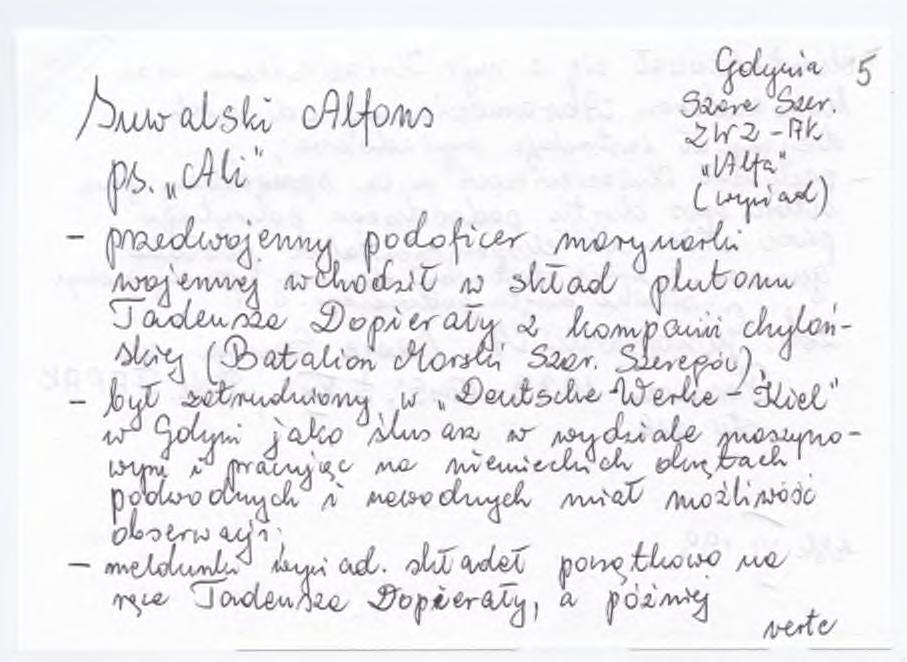 Gdynia 5
Szare Szer.
ZWZ-AK
"Alfa"
(wywiad)
Suwalski Alfons
ps. „Ali"
- przedwojenny podoficer marynarki
wojennej wchodził w skład plutonu
Tadeusza Dopierały z kompanii chyloń-
skiej (Batalion Morski Szar. Szeregów).
- był zatrudniony w „Deutsche-Werke-Kiel"
w Gdyni jako ślusarz w wydziale maszyno-
wym i pracując na niemieckich okrętach
podwodnych i nawodnych miał możliwość
obserwacji.
- meldunki wywiad. składał początkowo na
ręce Tadeusza Dopierały, a później
verte